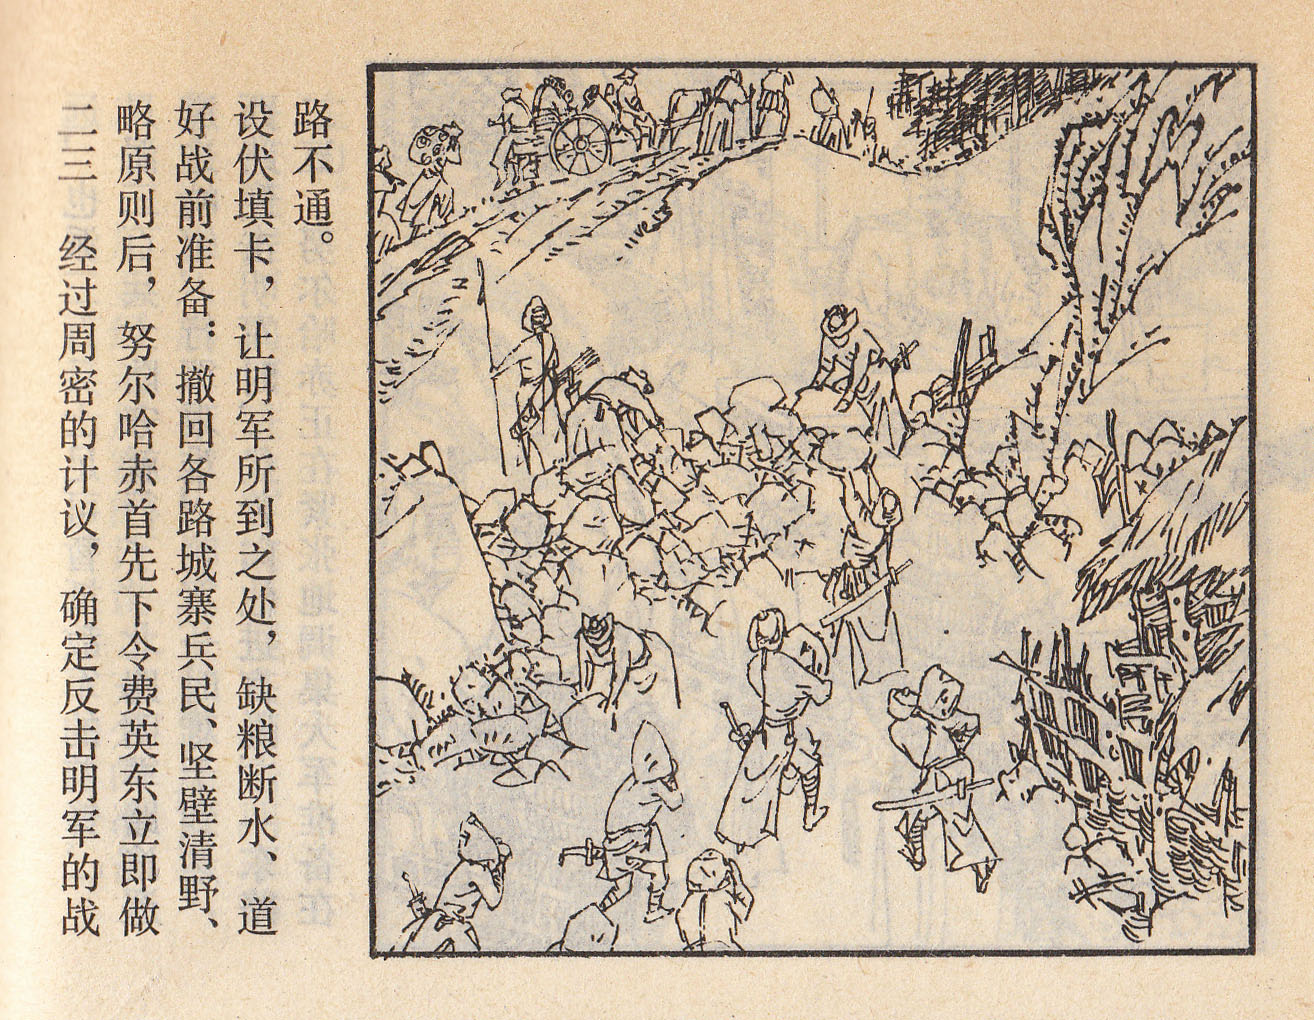 二三 经过周密的计议，确定反击明军的战
略原则后，努尔哈赤首先下令费英东立即做
好战前准备：撤回各路城寨兵民、坚壁清野、
设伏填卡，让明军所到之处，缺粮断水、道
路不通。